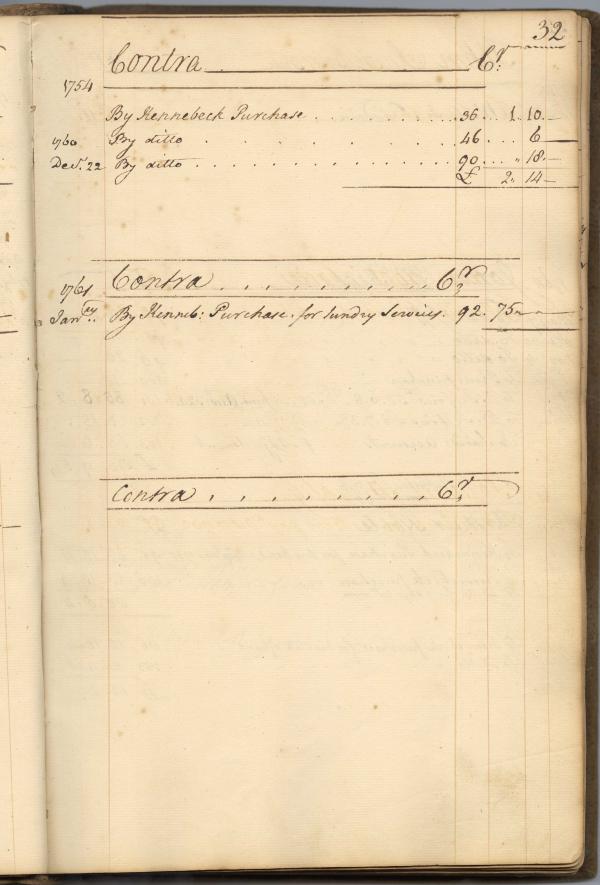 32
Contra Cr:
1754
By Kennebeck Purchase . . . . . . . . . 36 . . . 1.. 10 —
1760 By ditto . . . . . . . . . . . 46 . . . 6 —
Decr. 22 By ditto . . . . . . . . . . . . . . 90 . . . " 18 —
£ 2.. 14 —
1761 Contra . . . . . . . . . . Cr
Janry. By Kenneb: Purchase for sundry Services. 92. 75 " — " —
Contra . . . . . . . . . Cr